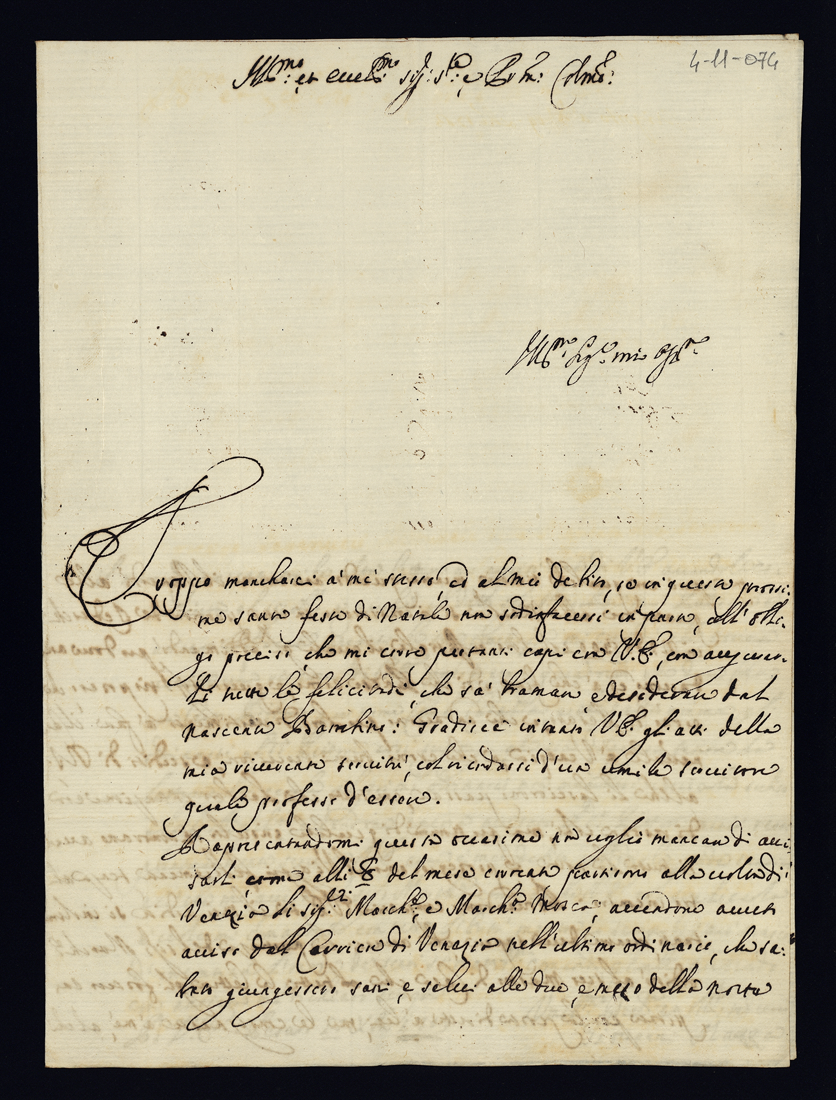 4-11-074
Ill.mo et Eccel.mo Sig.r S.re e P.ron Colmo:
Ill.mo Sig.re mio
Troppo mancharei à me stesso, ed al mio debito, se in questa prossi:
ma santa festa di Natale non sodisfacessi in parte, all'obli:
go preciso, che mi corre con V.E., con augurar:
li tutte le felicità, che sà bramare e desiderare dal
nascente Bambino: Gradisca intanto V.E. gli atti della
mia riverente servitù, col ricordarsi d'un umile servitore
quale professo d'essere.
Rapresentandomi questa occasione non voglio mancare di avi:
sarla come alli 8 del mese corrente partirono alla volta di
Venezia li Sig.ri March.e, e March.a Mosca, avendone avuto
aviso dal Corriero di Venezia nell'ultimo ordinario, che sa:
bato giungessero sani, e salvi alle due, e mezo della notte